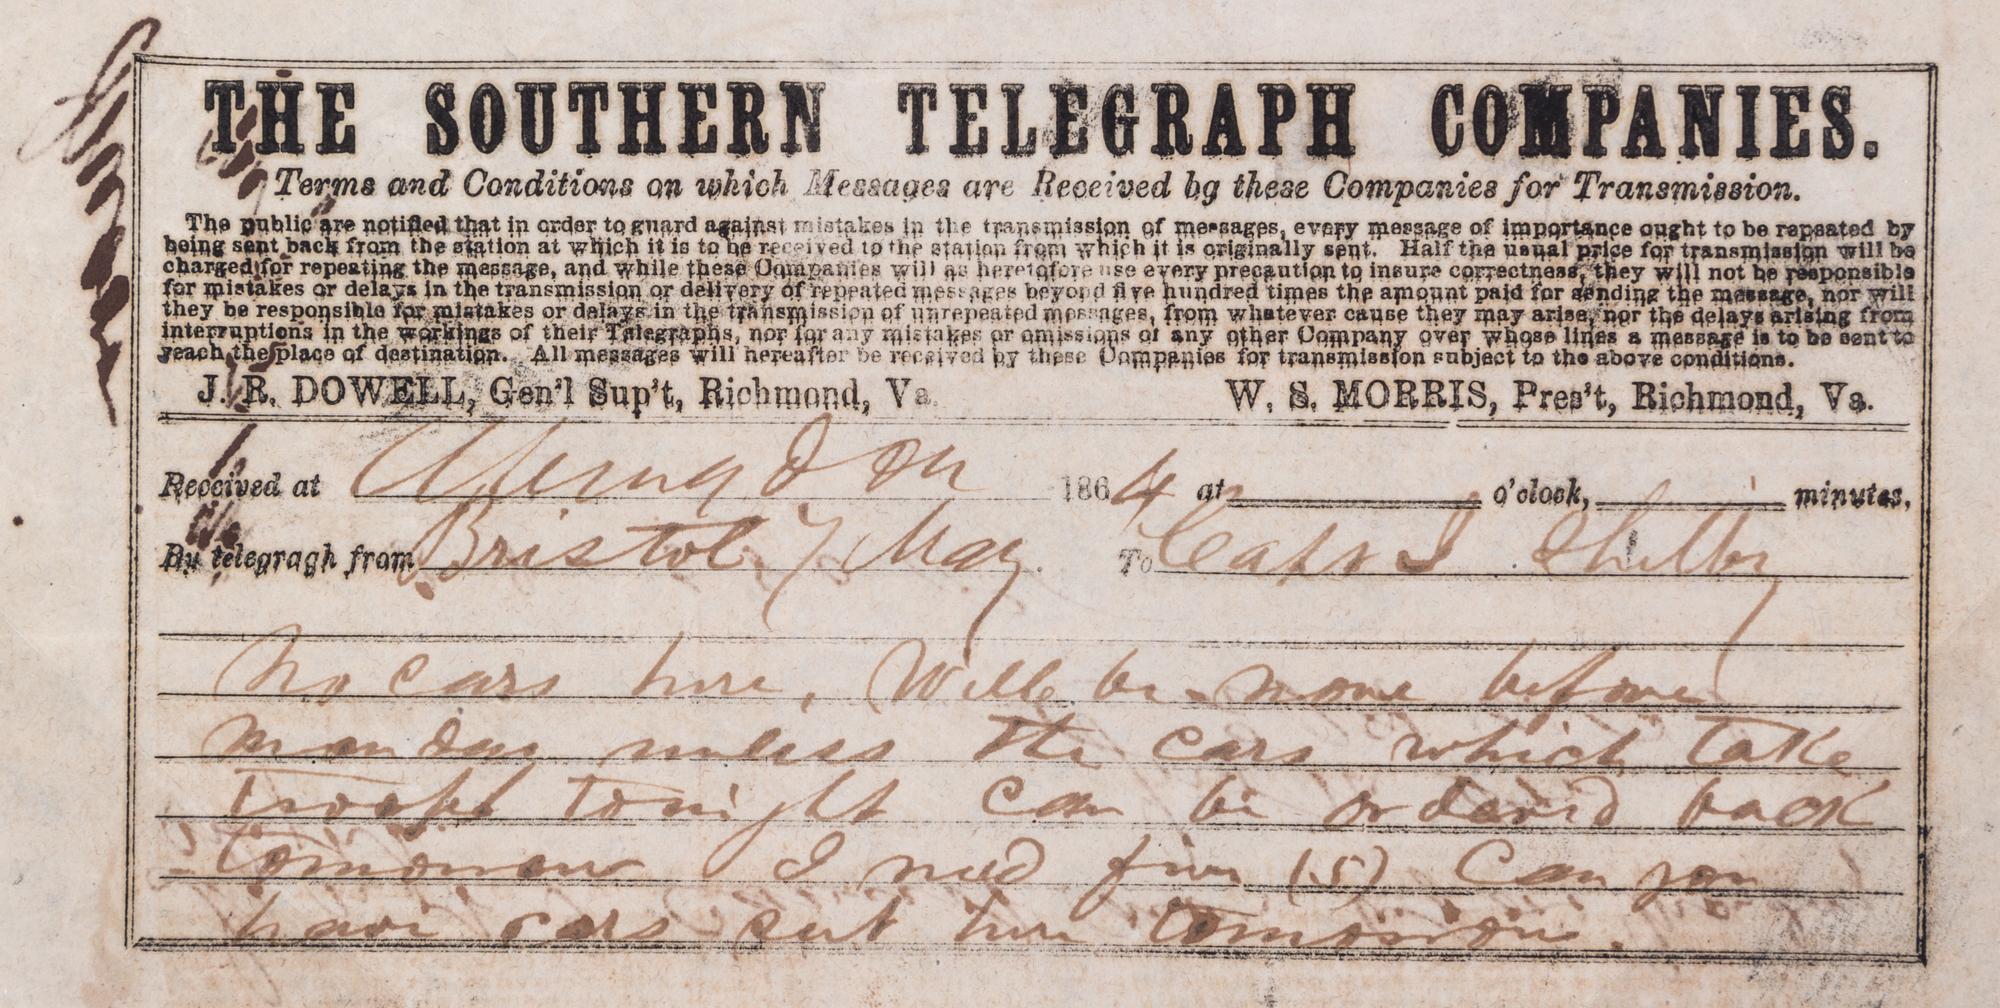 THE SOUTHERN TELEGRAPH COMPANIES.
Terms and Conditions on which Messages are Received by these Companies for Transmission.
The public are notified that in order to guard against mistakes in the transmission of messages, every message of importance ought to be repeated by
being sent back from the station at which it is to be received to the station from which it is originally sent. Half the usual price for transmission will be
charged for repeating the message, and while these Companies will as heretofore use every precaution to insure correctness, they will not be responsible
for mistakes or delays in the transmission or delivery of repeated messages beyond five hundred times the amount paid for sending the message, nor will
they be responsible for mistakes or delays in the transmission of unrepeated messages, from whatever cause they may arise, nor the delays arising from
interruptions in the workings of their Telegraphs, nor for any mistakes or omissions of any other Company over whose lines a message is to be sent to
reach the place of destination. All messages will hereafter be received by these Companies for transmission subject to the above conditions.
J. R. DOWELL, Gen'l Sup't, Richmond, Va. W. S. MORRIS, Pres't, Richmond, Va.
Received at Abingdon 1864 at o'clock, minutes.
By telegragh from Bristol 7 May To Capt J Shelby
No cars here, Will be none before
monday unless the cars which take
troops tonight can be ordered back
tomorrow I need five (5) Can you
have cars sent here tomorrow.